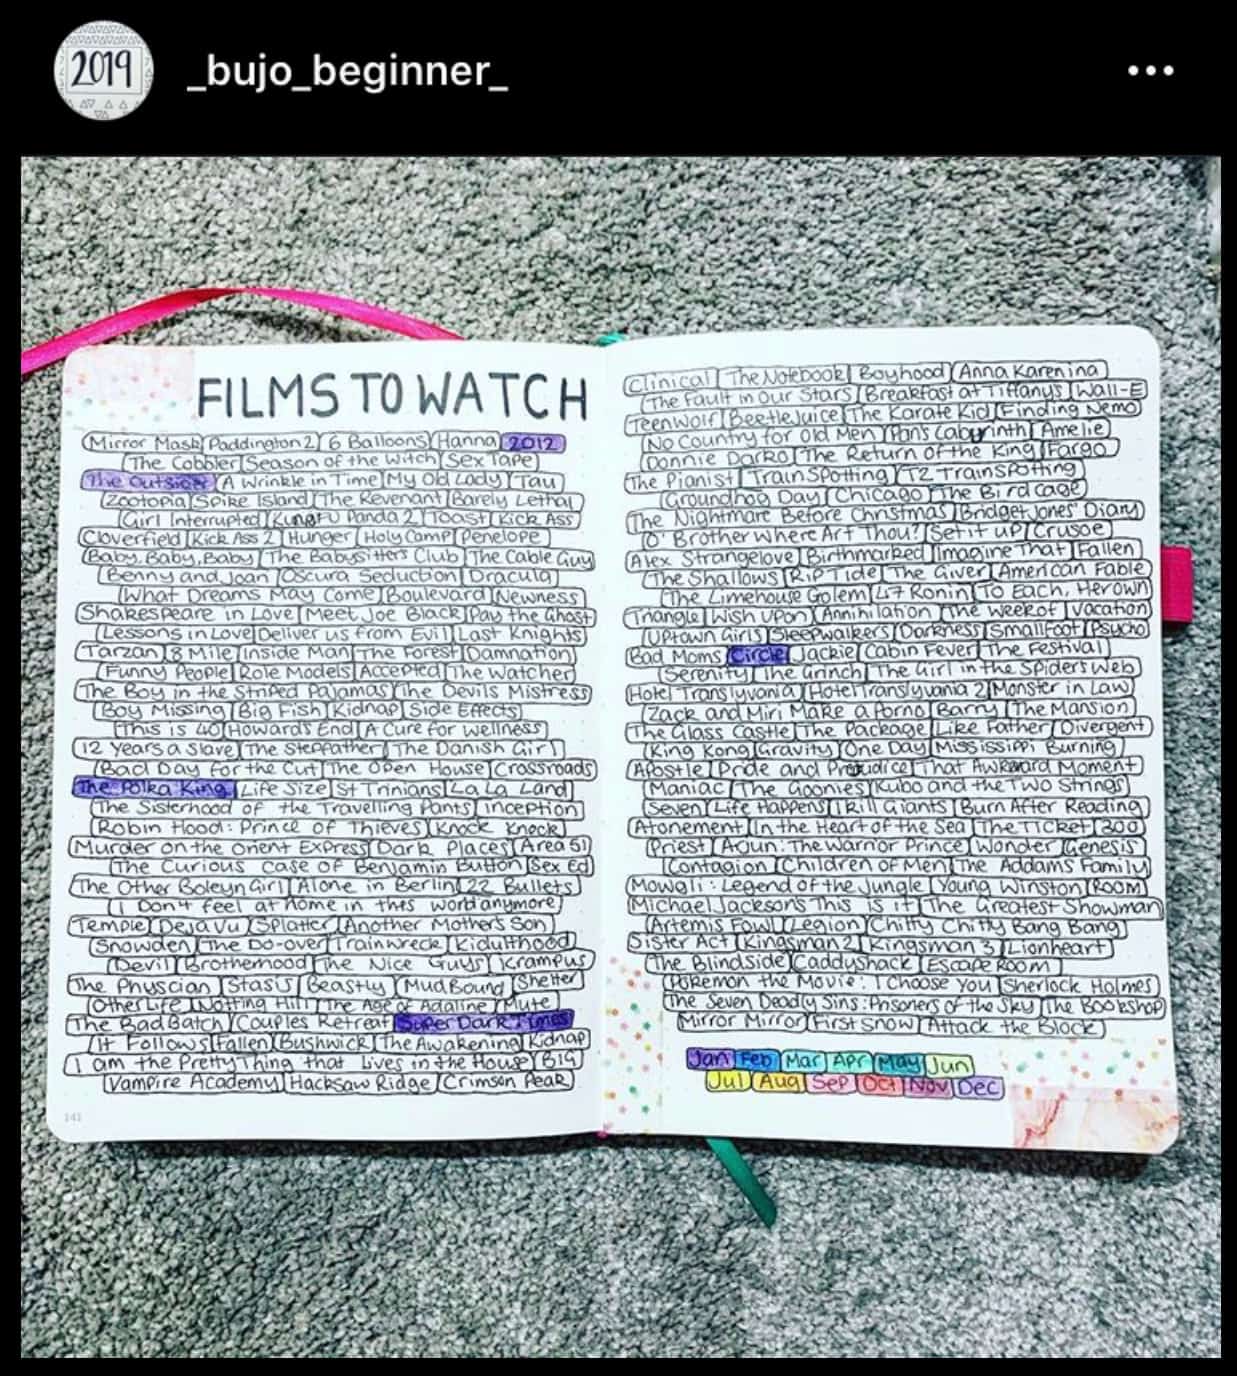 2019
_bujo_beginner_
FILMS TO WATCH
Mirror Mask Paddington 2 6 Balloons Hanna 2012
The Cobbler Season of the Witch Sex Tape
The Outsider A Wrinkle in Time My Old Lady Tau
Zootopia Spike Island The Revenant Barely Lethal
Girl Interrupted Kung Fu Panda 2 Toast Kick Ass
Cloverfield Kick Ass 2 Hunger Holy Camp Penelope
Baby, Baby, Baby The Babysitters Club The Cable Guy
Benny and Joan Oscura Seduction Dracula
What Dreams May Come Boulevard Newness
Shakespeare in Love Meet Joe Black Pay the Ghost
Lessons in Love Deliver us from Evil Last Knights
Tarzan 8 Mile Inside Man The Forest Damnation
Funny People Role Models Accepted The Watcher
The Boy in the Striped Pajamas The Devils Mistress
Boy Missing Big Fish Kidnap Side Effects
This is 40 Howards End A Cure for Wellness
12 Years a Slave The Stepfather The Danish Girl
Bad Day for the Cut The Open House Crossroads
The Polka King Life Size St Trinians La La Land
The Sisterhood of the Travelling Pants Inception
Robin Hood: Prince of Thieves Knock Knock
Murder on the Orient Express Dark Places Area 51
The Curious Case of Benjamin Button Sex Ed
The Other Boleyn Girl Alone in Berlin 22 Bullets
I Don't feel at home in this world anymore
Temple Deja Vu Splatter Another Mother's Son
Snowden The Do-over Trainwreck Kidulthood
Devil Brotherhood The Nice Guys Krampus
The Physcian Stasis Beastly Mudbound Shelter
Other Life Notting Hill The Age of Adaline Mute
The Bad Batch Couples Retreat Super Dark Times
It Follows Fallen Bushwick The Awakening Kidnap
I am the Pretty Thing that Lives in the House Big
Vampire Academy Hacksaw Ridge Crimson Peak
141
Clinical The Notebook Boyhood Anna Karenina
The Fault in Our Stars Breakfast at Tiffanys Wall-E
Teen Wolf Beetle Juice The Karate Kid Finding Nemo
No Country for Old Men Pan's Labyrinth Amelie
Donnie Darko The Return of the King Fargo
The Pianist Train Spotting T2 TrainSpotting
Groundhog Day Chicago The Birdcage
The Nightmare Before Christmas Bridget Jones' Diary
O' Brother Where Art Thou? Set it up Crusoe
Alex Strangelove Birthmarked Imagine That Fallen
The Shallows Rip Tide The Giver American Fable
The Limehouse Golem 47 Ronin To Each, Her own
Triangle Wish Upon Annihilation The Week of Vacation
Uptown Girls Sleepwalkers Darkness Smallfoot Psycho
Bad Moms Circle Jackie Cabin Fever The Festival
Serenity The Grinch The Girl in the Spiders Web
Hotel Translyvania Hotel Translyvania 2 Monster in Law
Zack and Miri Make a Porno Barry The Mansion
The Glass Castle The Package Like Father Divergent
King Kong Gravity One Day Mississippi Burning
Apostle Pride and Prejudice That Awkward Moment
Maniac The Goonies Kubo and the Two Strings
Seven Life Happens I Kill Giants Burn After Reading
Atonement In the Heart of the Sea The Ticket 300
Priest Arjun: The Warrior Prince Wonder Genesis
Contagion Children of Men The Addams Family
Mowgli: Legend of the Jungle Young Winston Room
Michael Jackson's This is it The Greatest Showman
Artemis Fowl Legion Chitty Chitty Bang Bang
Sister Act Kingsman 2 Kingsman 3 Lionheart
The Blindside Caddyshack Escape Room
Pokemon the Movie: I Choose You Sherlock Holmes
The Seven Deadly Sins: Prisoners of the Sky The Bookshop
Mirror Mirror First Snow Attack the Block
Jan Feb Mar Apr May Jun
Jul Aug Sep Oct Nov Dec